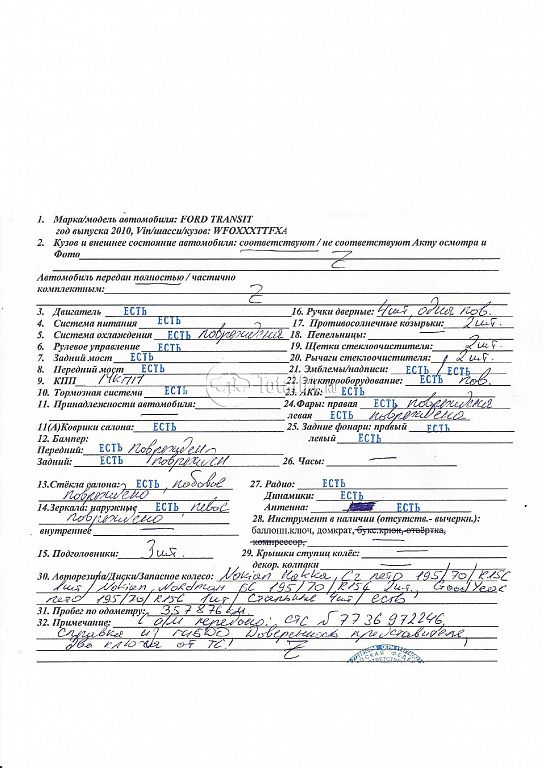 1. Марка/модель автомобиля: FORD TRANSIT
год выпуска 2010, Vin/шасси/кузов: WFOXXXTTFXA
2. Кузов и внешнее состояние автомобиля: соответствуют / не соответствуют Акту осмотра и
Фото Z
Автомобиль передан полностью / частично
комплектным: Z
3. Двигатель ЕСТЬ
4. Система питания ЕСТЬ
5. Система охлаждения ЕСТЬ повреждения
6. Рулевое управление ЕСТЬ
7. Задний мост ЕСТЬ
8. Передний мост ЕСТЬ
9. КПП МКПП
10. Тормозная система ЕСТЬ
11. Принадлежности автомобиля:
11(А)Коврики салона: ЕСТЬ
12. Бампер:
Передний: ЕСТЬ повреждён
Задний: ЕСТЬ повреждён
13.Стёкла салона: ЕСТЬ, лобовое
повреждено
14.Зеркала: наружные ЕСТЬ, левое
повреждено
внутреннее
15. Подголовники: 3 шт.
16. Ручки дверные: 4 шт, одна пов.
17. Противосолнечные козырьки: 2 шт.
18. Пепельницы:
19. Щетки стеклоочистителя: 2 шт.
20. Рычаги стеклоочистителя: 2 шт.
21. Эмблемы/надписи: ЕСТЬ / ЕСТЬ
22. Электрооборудование: ЕСТЬ пов.
23. АКБ: ЕСТЬ
24.Фары: правая ЕСТЬ повреждения
левая ЕСТЬ повреждена
25. Задние фонари: правый ЕСТЬ
левый ЕСТЬ
26. Часы:
27. Радио: ЕСТЬ
Динамики: ЕСТЬ
Антенна: ЕСТЬ
28. Инструмент в наличии (отсутств.- вычеркн.):
баллон.ключ, домкрат, букс.крюк, отвёртка,
компрессор,
29. Крышки ступиц колёс:
декор. колпаки
30. Авторезина/Диски/Запасное колесо: Nokian Hakka, Cz лето 195/70/R15C
1шт/ Nokian Nordman 195/70/R15C 2шт, GoodYear
лето 195/70/R15C 1шт/ Стальные 4шт/ есть
31. Пробег по одометру: 357876 км.
32. Примечание: с а/м передано: СТС № 7736 972246,
Справка из ГИБДД Доверенность представителя,
два ключа от ТС, Z